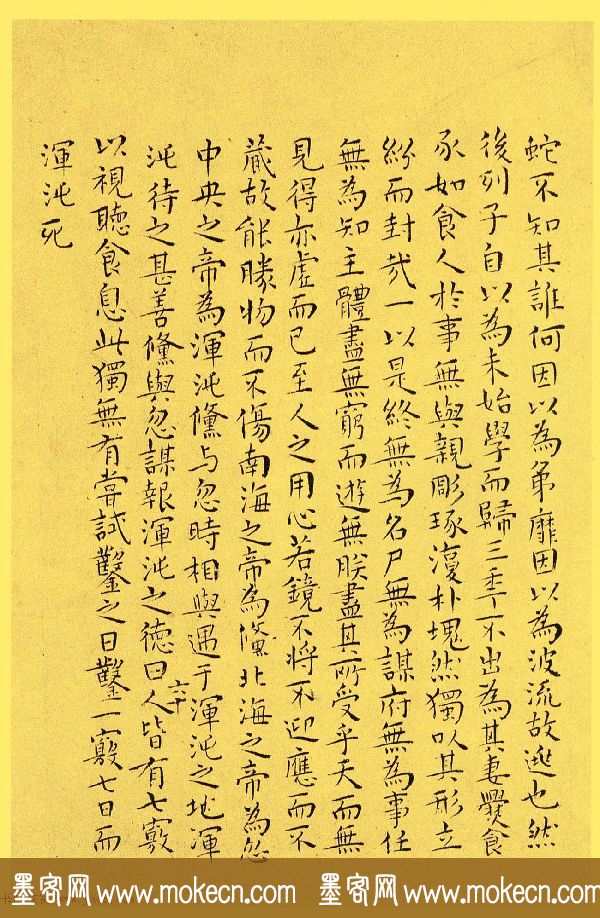 蛇不知其誰何因以為弟靡因以為波流故逃也然
後列子自以為未始學而歸三年不出為其妻爨食
豕如食人於事無與親彫琢復朴塊然獨以其形立
紛而封哉一以是終無為名尸無為謀府無為事任
無為知主體盡無窮而遊無朕盡其所受乎天而無
見得亦虛而已至人之用心若鏡不將不迎應而不
藏故能勝物而不傷南海之帝為儵北海之帝為忽
中央之帝為渾沌儵与忽時相與遇于渾沌之地渾
沌待之甚善儵與忽謀報渾沌之德曰人皆有七竅
以視聽食息此獨無有嘗試鑿之日鑿一竅七日而
渾沌死
墨客网 www.mokecn.com 墨客网 www.mokecn.com